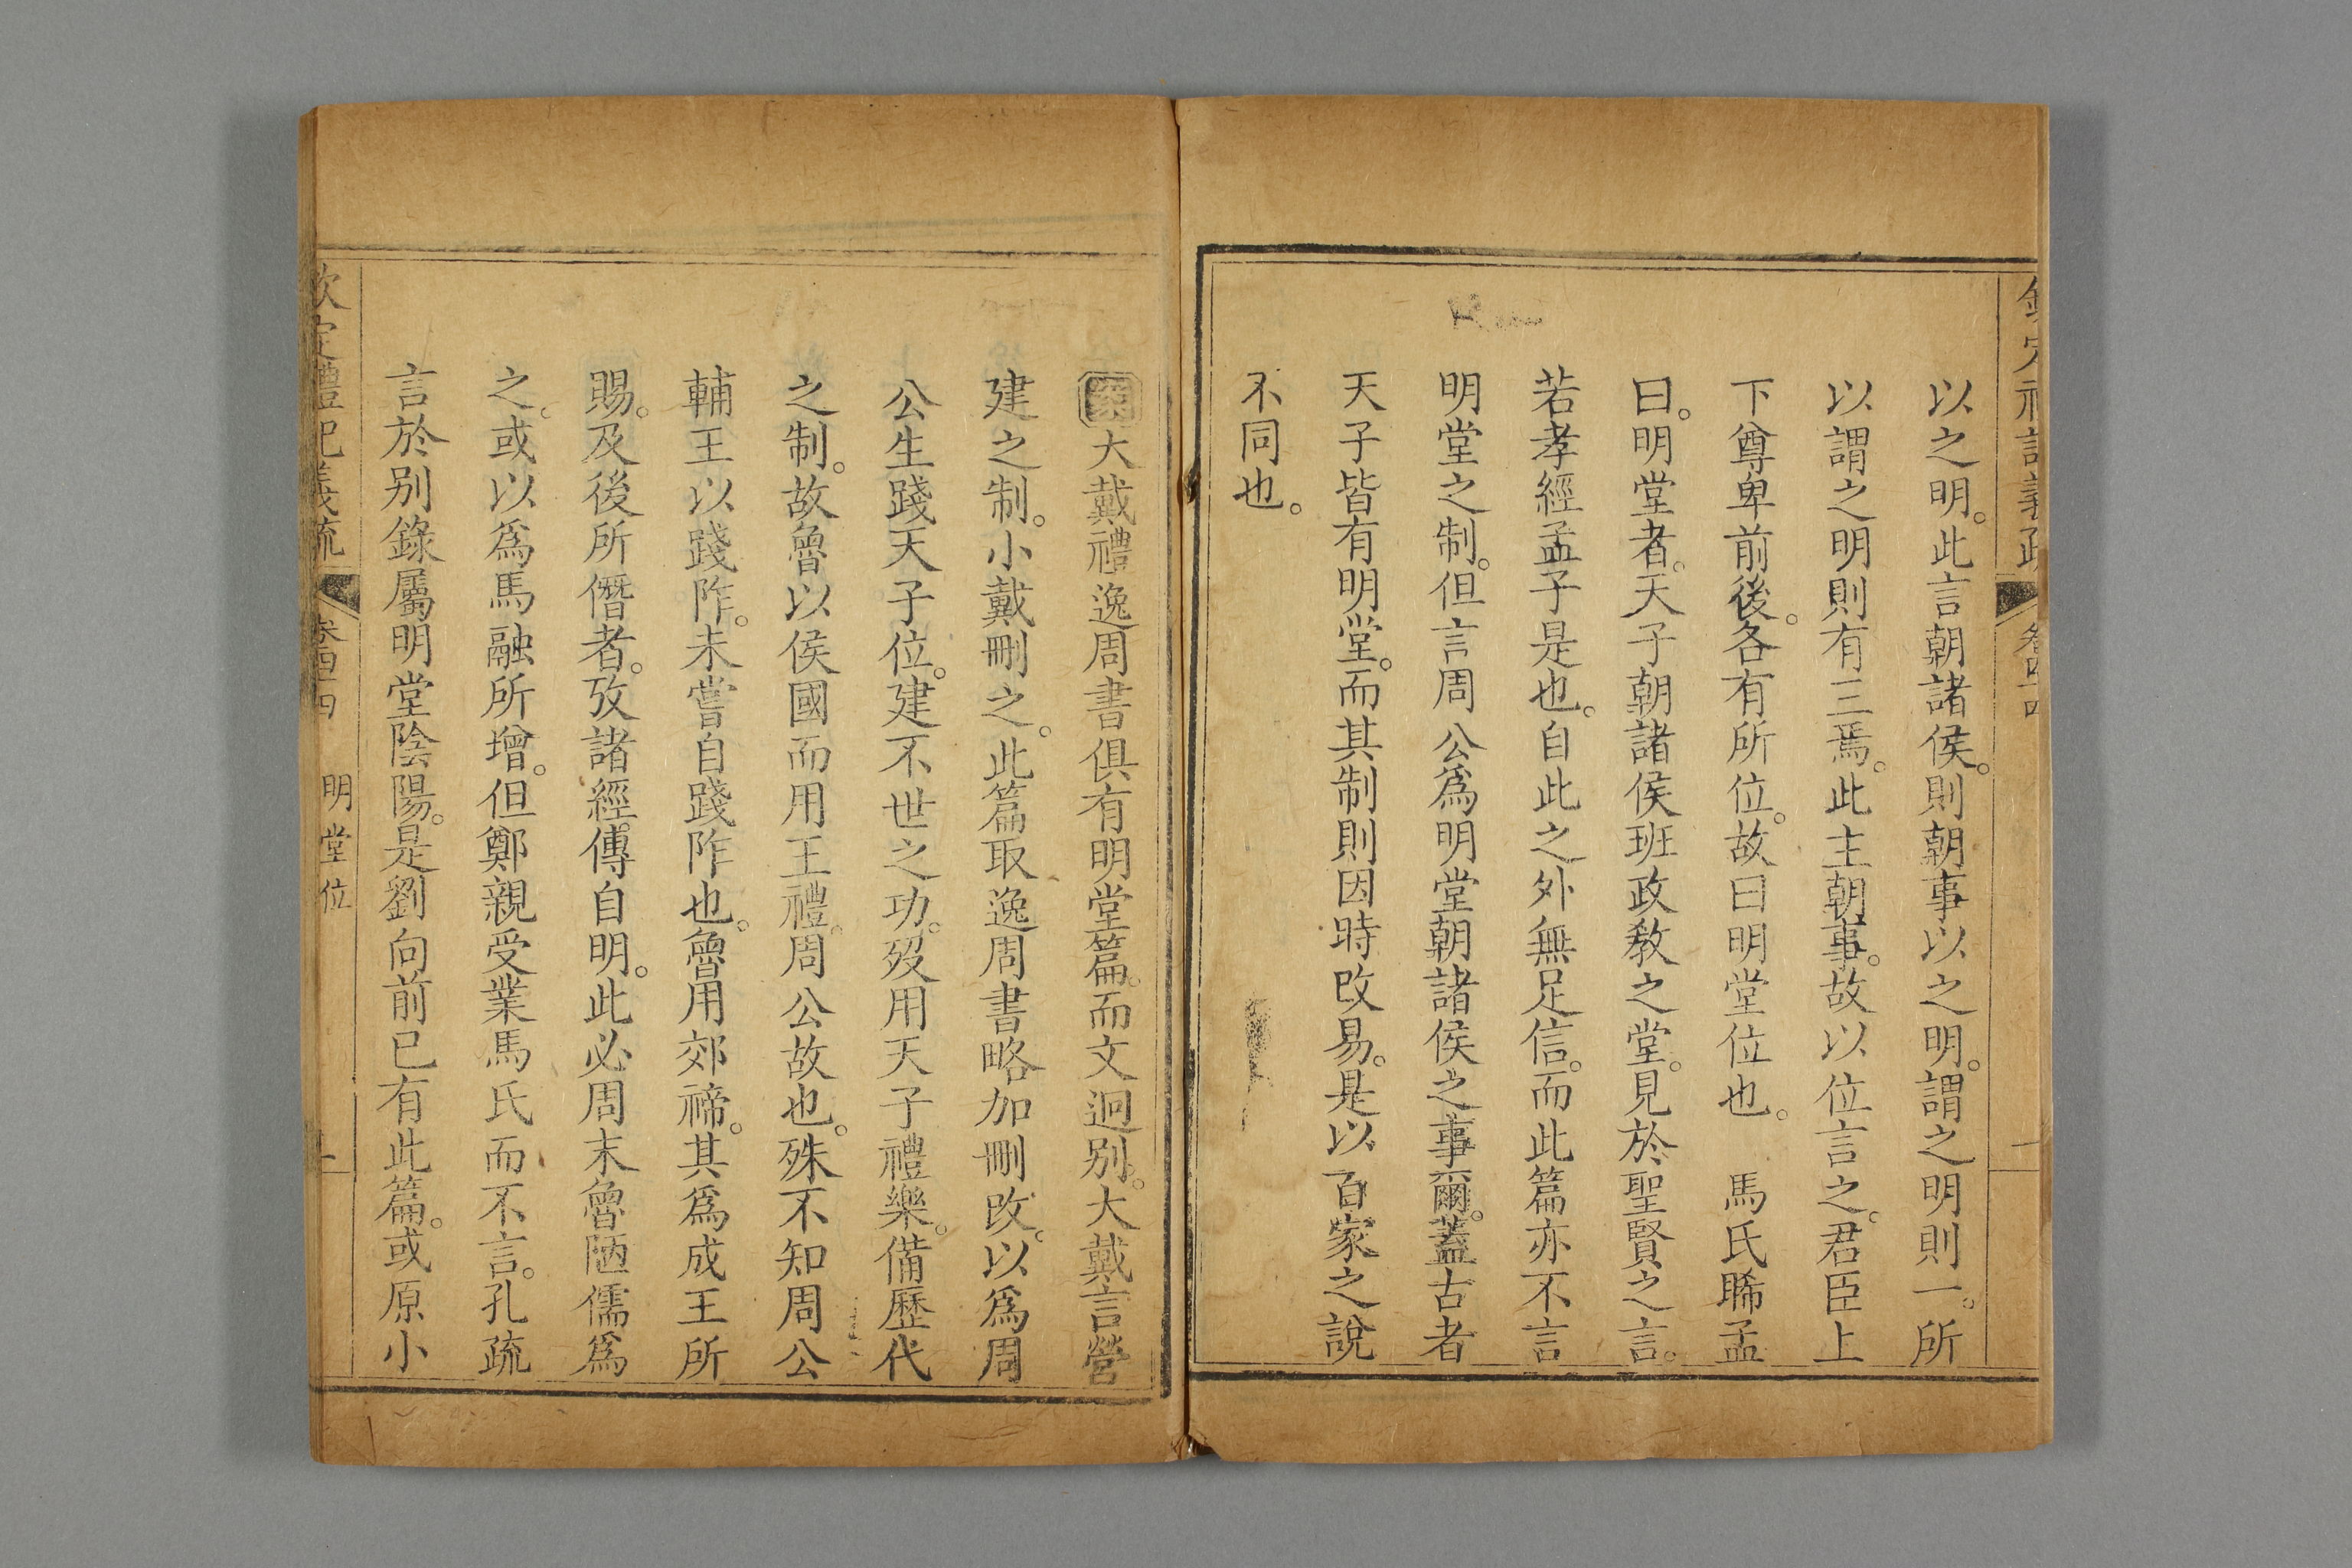 以之明。此言朝諸侯。則朝事以之明。謂之明則一。所
以謂之明則有三焉。此主朝事。故以位言之。君臣上
下尊卑前後。各有所位。故曰明堂位也。　馬氏睎孟
曰。明堂者。天子朝諸侯班政教之堂。見於聖賢之言。
若孝經孟子是也。自此之外無足信。而此篇亦不言
明堂之制。但言周公爲明堂朝諸侯之事爾。蓋古者
天子皆有明堂。而其制則因時改易。是以百家之說
不同也。
案大戴禮逸周書俱有明堂篇。而文迥别。大戴言營
建之制。小戴刪之。此篇取逸周書略加刪改。以爲周
公生踐天子位。建不世之功。歿用天子禮樂。備歷代
之制。故魯以侯國而用王禮。周公故也。殊不知周公
輔王以踐阼。未嘗自踐阼也。魯用郊禘。其爲成王所
賜。及後所僭者。攷諸經傳自明。此必周末魯陋儒爲
之。或以爲馬融所增。但鄭親受業馬氏而不言。孔疏
言於别錄屬明堂陰陽。是劉向前已有此篇。或原小
欽定禮記義疏　卷四十四　明堂位